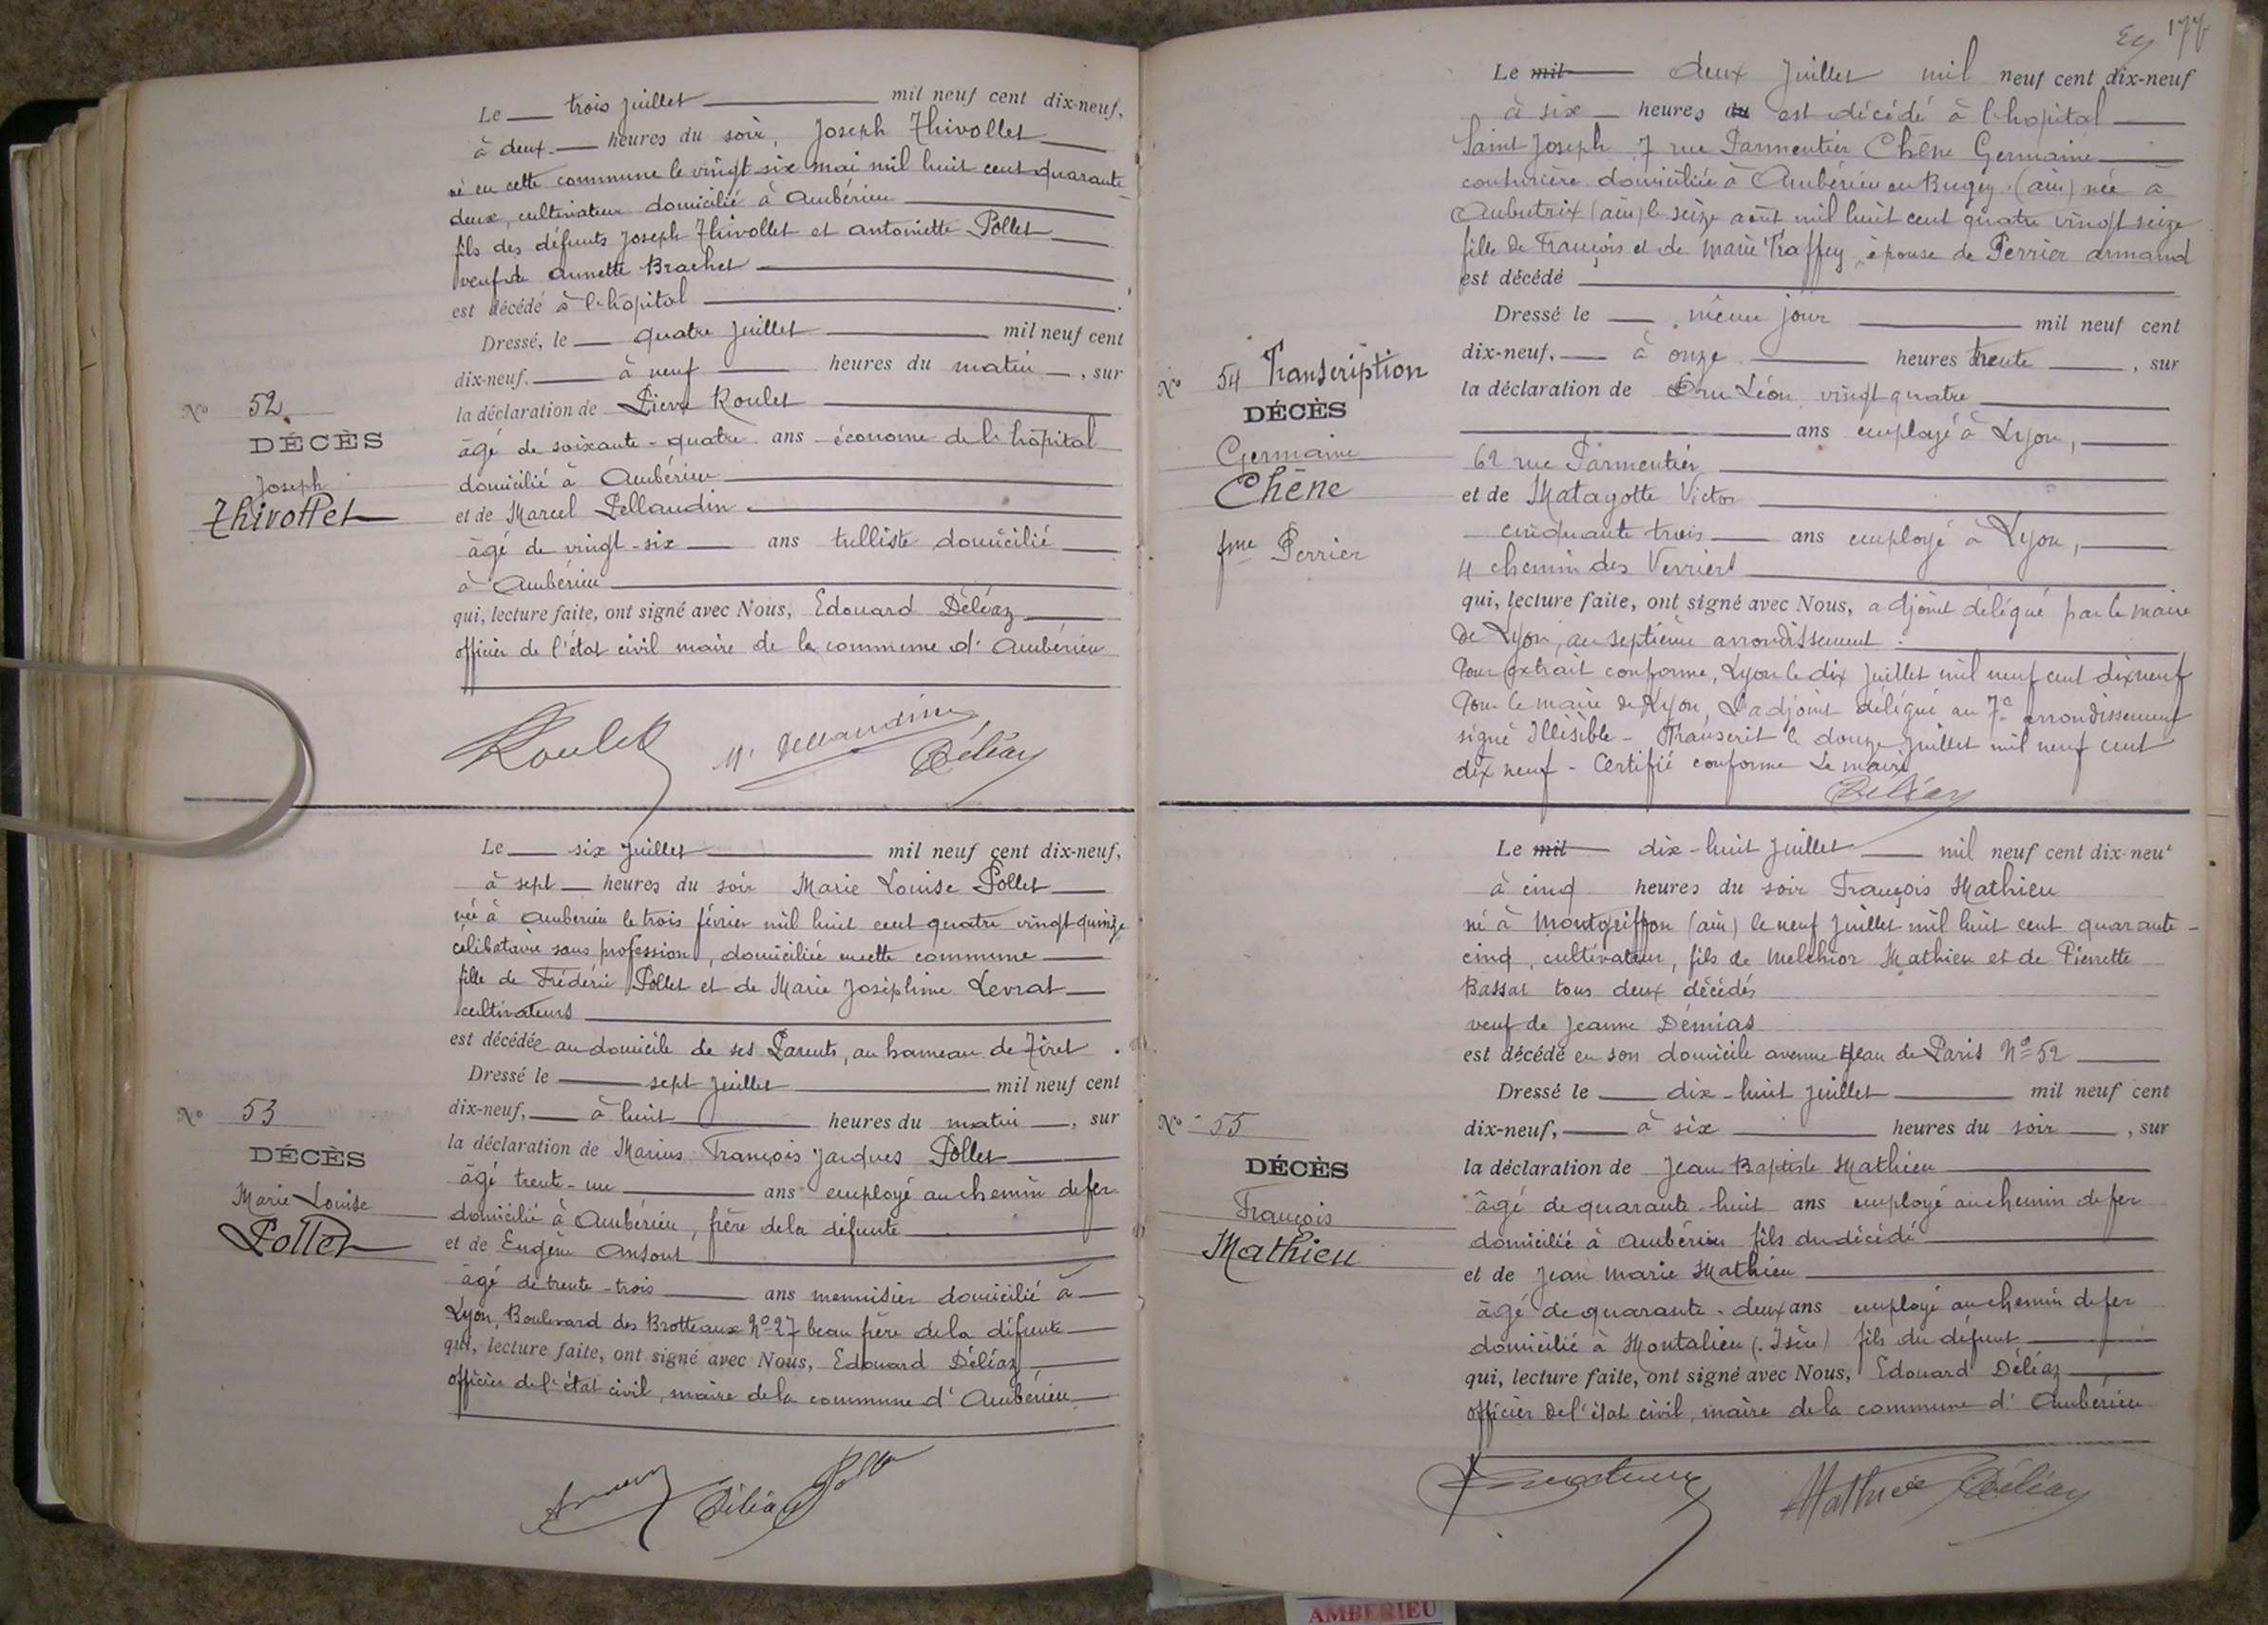 Le trois juillet mil neuf cent dix-neuf,
à deux heures du soir, Joseph Thivollet
né en cette commune le vingt-six mai mil huit cent quarante
deux, cultivateur domicilié à Ambérieu
fils des défunts Joseph Thivollet et antoinette Pollet
veuf de annette Brachet
est décédé à l'hôpital
Dressé, le quatre juillet mil neuf cent
dix-neuf, à neuf heures du matin, sur
N° 52
DÉCÈS
Joseph
Thivollet
la déclaration de Pierre Roulet
âgé de soixante-quatre ans économe de l'hôpital
domicilié à Ambérieu
et de Marcel Pellaudin
âgé de vingt-six ans tulliste domicilié
à Ambérieu
qui, lecture faite, ont signé avec Nous, Edouard Déléaz
officier de l'état civil maire de la commune d'Ambérieu
Roulet M. Pellaudin Déléaz
Le six juillet mil neuf cent dix-neuf,
à sept heures du soir Marie Louise Pollet
née à Ambérieu le trois février mil huit cent quatre vingt quinze
célibataire sans profession, domiciliée en cette commune
fille de Frédéric Pollet et de Marie Joséphine Levrat
cultivateurs
est décédée au domicile de ses Parents, au hameau de Tiret.
Dressé le sept juillet mil neuf cent
dix-neuf, à huit heures du matin, sur
N° 53
DÉCÈS
Marie Louise
Pollet
la déclaration de Marius François Jacques Pollet
âgé trente-un ans employé au chemin de fer
domicilié à Ambérieu, frère de la défunte
et de Eugène Ansout
âgé de trente-trois ans menuisier domicilié à
Lyon, Boulevard des Brotteaux N° 27 beau frère de la défunte
qui, lecture faite, ont signé avec Nous, Edouard Déléaz
officier de l'état civil, maire de la commune d'Ambérieu
Déléaz Pollet
177
Le mil deux Juillet mil neuf cent dix-neuf
à six heures du est décédé à l'hopital
Saint Joseph, 7 rue Parmentier Chêne Germaine
couturière domiciliée à Ambérieu en Bugey (ain) née à
Ambutrix (ain) le seize août mil huit cent quatre vingt seize
fille de François et de Marie Traffey, épouse de Perrier armand
est décédé
Dressé le même jour mil neuf cent
dix-neuf, à onze heures trente, sur
N° 54 Transcription
DÉCÈS
Germaine
Chêne
fme Perrier
la déclaration de Dru Léon, vingt quatre
ans employé à Lyon,
62 rue Parmentier
et de Matagotte Victor
cinquante trois ans employé à Lyon,
4 chemin des Verriers
qui, lecture faite, ont signé avec Nous, adjoint délégué par le maire
de Lyon, au septième arrondissement.
Pour extrait conforme, Lyon le dix Juillet mil neuf cent dix neuf
Pour le maire de Lyon, L'adjoint délégué au 7e arrondissement
signé Illisible - Transcrit le douze juillet mil neuf cent
dix neuf - Certifié conforme Le maire
Déléaz
Le mil dix-huit juillet mil neuf cent dix-neuf
à cinq heures du soir François Mathieu
né à Montgriffon (ain) le neuf juillet mil huit cent quarante-
cinq, cultivateur, fils de Melchior Mathieu et de Pierrette
Bassat tous deux décédés
veuf de Jeanne Démias
est décédé en son domicile avenue Jean de Paris N° 52
Dressé le dix-huit juillet mil neuf cent
dix-neuf, à six heures du soir, sur
N° 55
DÉCÈS
François
Mathieu
la déclaration de Jean Baptiste Mathieu
âgé de quarante-huit ans employé au chemin de fer
domicilié à Ambérieu fils du décédé
et de Jean Marie Mathieu
âgé de quarante-deux ans employé au chemin de fer
domicilié à Montalieu (Isère) fils du défunt
qui, lecture faite, ont signé avec Nous, Edouard Déléaz
officier de l'état civil, maire de la commune d'Ambérieu
Mathieu Déléaz
AMBERIEU